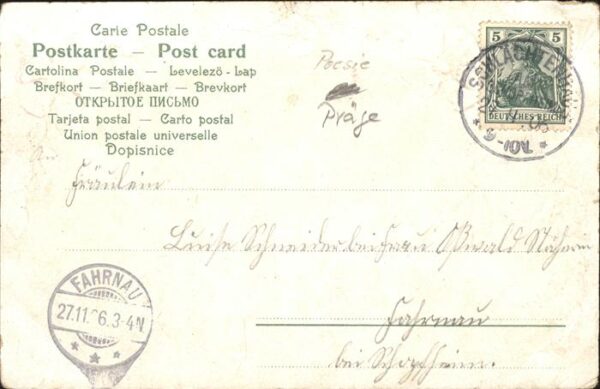 Carte Postale
Postkarte — Post card
Cartolina Postale — Levelező-Lap
Brefkort — Briefkaart — Brevkort
ОТКРЫТОЕ ПИСЬМО
Tarjeta postal — Carto postal
Union postale universelle
Dopisnice
Poesie
Präge
5 5
DEUTSCHES REICH
9-10V.
Fräulein
Luise Schneider bei Frau Oßwald
Fahrnau
bei Schopfheim.
FAHRNAU
27.11. 6.3-4N